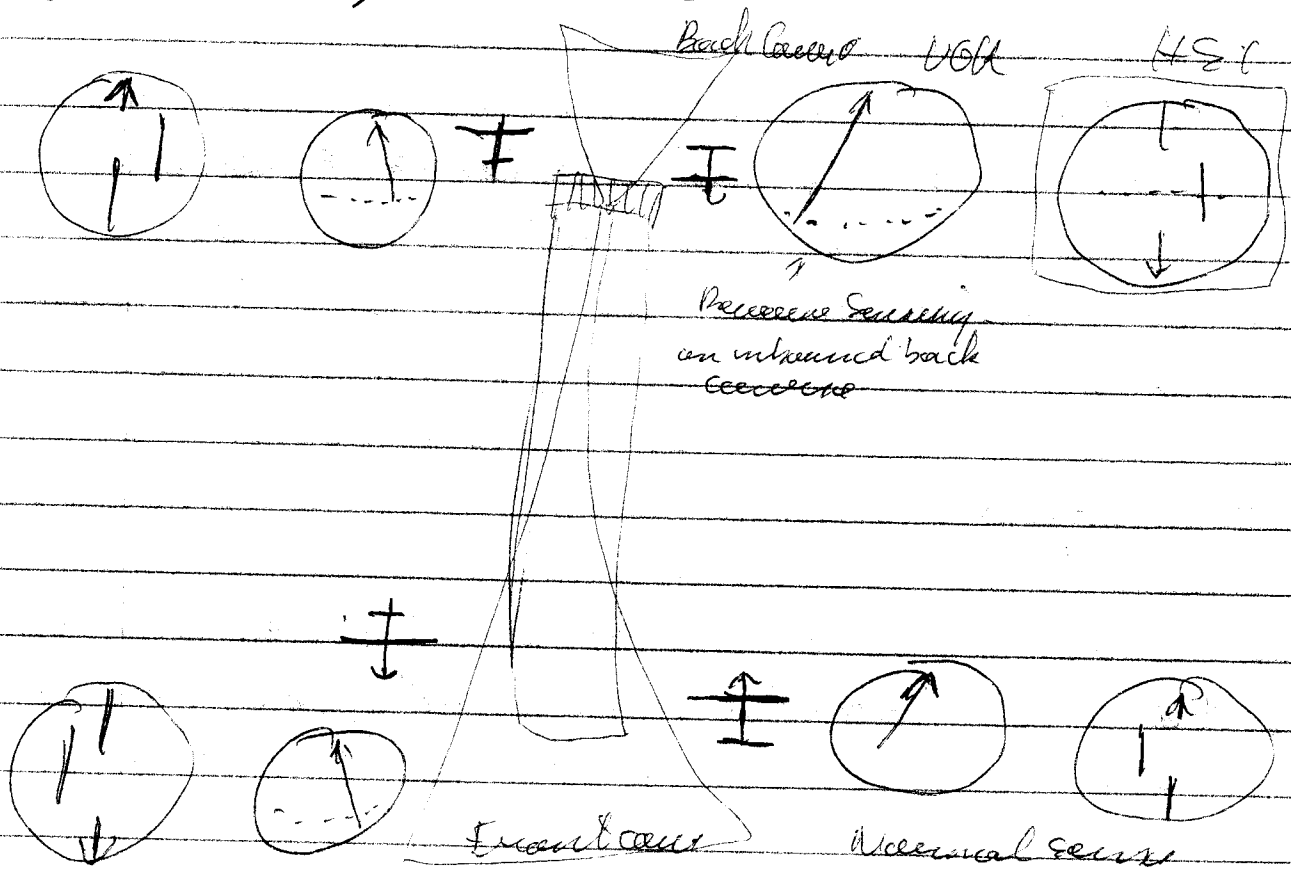 Back Course VOR HSI
Reverse Sensing
on inbound back
course
Front cour Normal sense